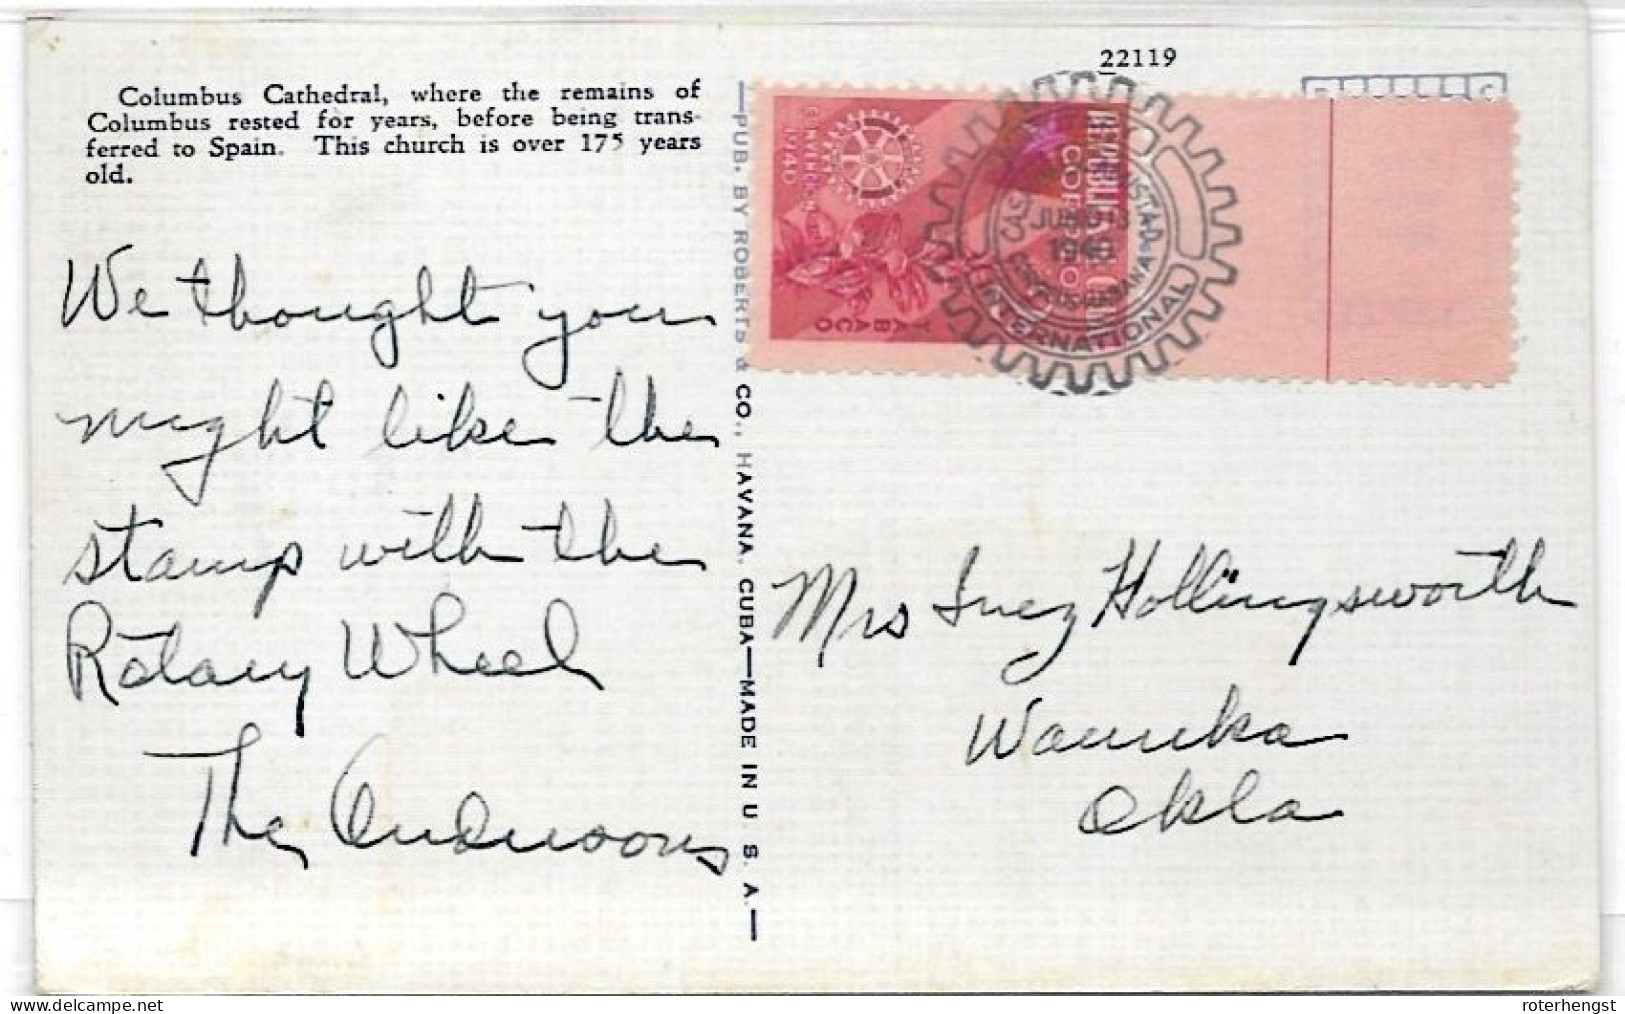 22119
Columbus Cathedral, where the remains of
Columbus rested for years, before being trans-
ferred to Spain. This church is over 175 years
old.
We thought you
might like the
stamp with the
Rotary Wheel
The Andersons
PUB. BY ROBERTS & CO., HAVANA, CUBA—MADE IN U. S. A.
REPUBLICA
CORREO
1940
TABACO
JUNIO 13
1940
INTERNATIONAL
Mrs Inez Hollingsworth
Waurika
Okla
Delcampe.net
roterhengst